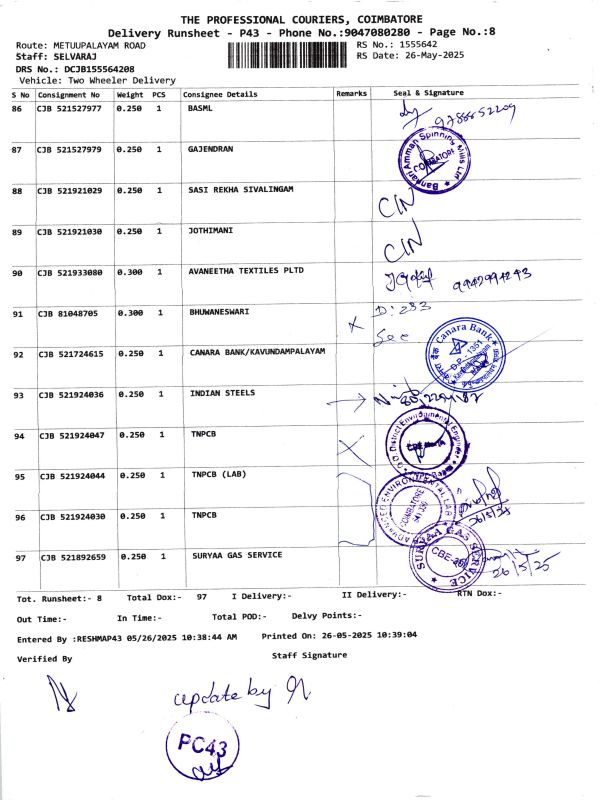 THE PROFESSIONAL COURIERS, COIMBATORE
Delivery Runsheet - P43 - Phone No.:9047080280 - Page No.:8
Route: METUUPALAYAM ROAD RS No.: 1555642
Staff: SELVARAJ RS Date: 26-May-2025
DRS No.: DCJB155564208
Vehicle: Two Wheeler Delivery
S No Consignment No Weight PCS Consignee Details Remarks Seal & Signature
86 CJB 521527977 0.250 1 BASML
87 CJB 521527979 0.250 1 GAJENDRAN
Bannari Amman Spinning Mills Ltd
COIMBATORE
88 CJB 521921029 0.250 1 SASI REKHA SIVALINGAM
CIN
89 CJB 521921030 0.250 1 JOTHIMANI
CIN
90 CJB 521933080 0.300 1 AVANEETHA TEXTILES PLTD
91 CJB 81048705 0.300 1 BHUWANESWARI X D: 233
See
92 CJB 521724615 0.250 1 CANARA BANK/KAVUNDAMPALAYAM
Canara Bank
D.P.-1351
93 CJB 521924036 0.250 1 INDIAN STEELS
94 CJB 521924047 0.250 1 TNPCB X
District Environmental Engineer
95 CJB 521924044 0.250 1 TNPCB (LAB)
ADVANCED ENVIRONMENTAL LAB
COIMBATORE
96 CJB 521924030 0.250 1 TNPCB
97 CJB 521892659 0.250 1 SURYAA GAS SERVICE
SURYAA GAS SERVICE
26/5/25
Tot. Runsheet:- 8 Total Dox:- 97 I Delivery:- II Delivery:- RTN Dox:-
Out Time:- In Time:- Total POD:- Delvy Points:-
Entered By :RESHMAP43 05/26/2025 10:38:44 AM Printed On: 26-05-2025 10:39:04
Verified By Staff Signature
update by
PC43